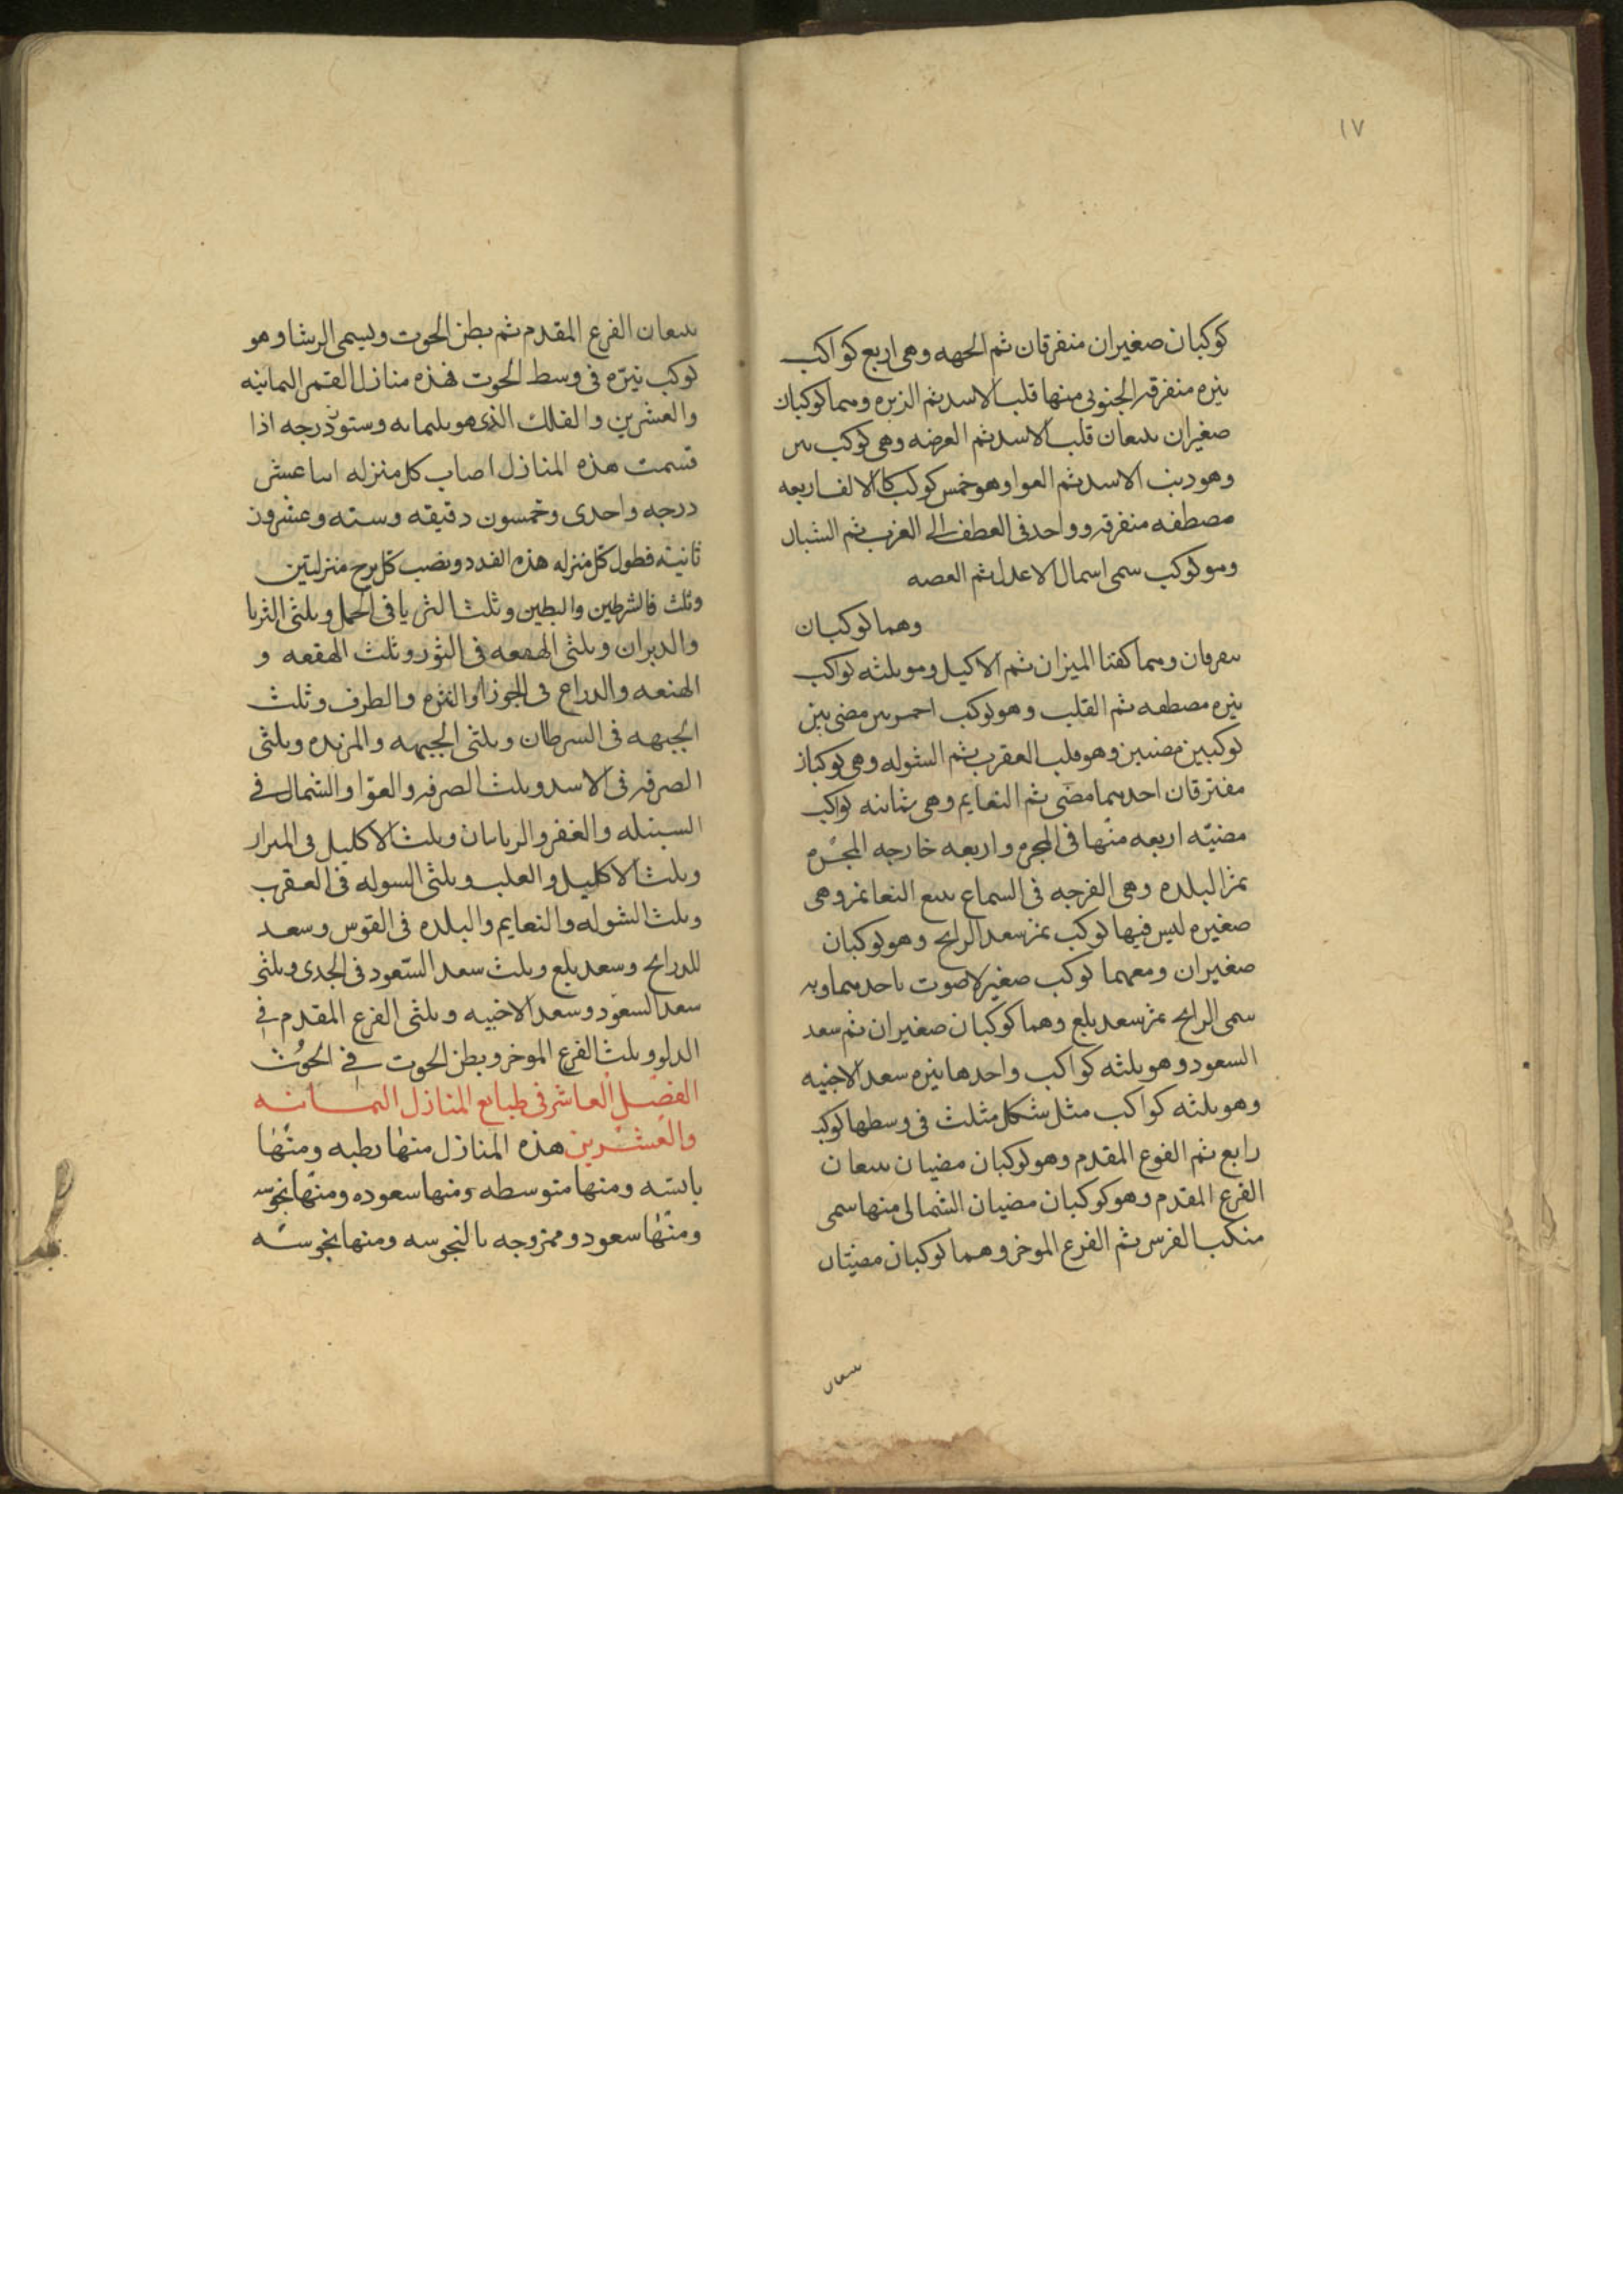 ١٧
كوكبان صغيران متفرقان ثم الجهه وهى اربع كواكب
نيره متفرقه الجنوبى منها قلب الاسد ثم الزبره وهما كوكبان
صغيران يتبعان قلب الاسد ثم العرضه وهى كوكب نير
وهو دنب الاسد ثم العوا وهو خمس كوكب كالالف اربعه
مصطفه متفرقه وواحد فى العطف الى الغرب ثم الشمال
وهو كوكب سمى اسمال الاعدل ثم العصه
وهما كوكبان
معرفان وهما كفتا الميزان ثم الاكيل وهو ثلثه كواكب
نيره مصطفه ثم القلب وهو كوكب احمر نير مضى بين
كوكبين مضيين وهو قلب العقرب ثم الشوله وهى كوكبان
مفترقان احدهما مضى ثم النعايم وهى ثمانيه كواكب
مضيئه اربعه منها فى المجره واربعه خارجه المجره
ثم البلده وهى الفرجه فى السماع تتبع النعائم وهى
صغيره ليس فيها كوكب ثم سعد الرابح وهو كوكبان
صغيران ومعهما كوكب صغير لاصوت باحدهما وبه
سمى الرابح ثم سعد بلع وهما كوكبان صغيران ثم سعد
السعود وهو ثلثه كواكب واحدها نيره سعد الاخبيه
وهو ثلثه كواكب مثل شكل مثلث فى وسطها كوكب
رابع ثم الفوع المقدم وهو كوكبان مضيان يتبعان
الفرع المقدم وهو كوكبان مضيان الشمالى منها سمى
منكب الفرس ثم الفرع الموخر وهما كوكبان مضيتان
يتبعان
يتبعان الفرع المقدم ثم بطن الحوت ويسمى الرشا وهو
كوكب نيره فى وسط الحوت فهذه منازل القمر الثمانيه
والعشرين والفلك الذى هو ثلثمائه وستون درجه اذا
قسمت هذه المنازل اصاب كل منزله اثنا عشر
درجه واحدى وخمسون دقيقه وسته وعشرون
ثانيه فطول كل منزله هذه القدد ونصب كل برج منزلتين
وثلث فالشرطين والبطين وثلث الثريا فى الحمل وثلثى الثريا
والدبران وثلثى الهقعه فى الثور وثلث الهقعه و
الهنعه والدراع فى الجوزا والنثره والطرف وثلث
الجبهه فى السرطان وثلثى الجبهه والمزبده وثلثى
الصرفه فى الاسد وثلث الصرفه والعوا والشمال فى
السنبله والغفر والزبانان وثلث الاكليل فى الميزان
وثلث الاكليل والقلب وثلثى الشوله فى العقرب
وثلث الشوله والنعايم والبلده فى القوس وسعد
للدرابح وسعد بلع وثلث سعد السعود فى الجدى وثلثى
سعد السعود وسعد الاخبيه وثلثى الفرع المقدم فى
الدلو وثلث الفرع الموخر وبطن الحوت فى الحوت
الفصل العاشر فى طبايع المنازل الثمانيه
والعشرين هذه المنازل منها رطبه ومنها
يابسه ومنها متوسطه ومنها سعوده ومنها نحوسه
ومنها سعود وممزوجه بالنحوسه ومنها نحوسه